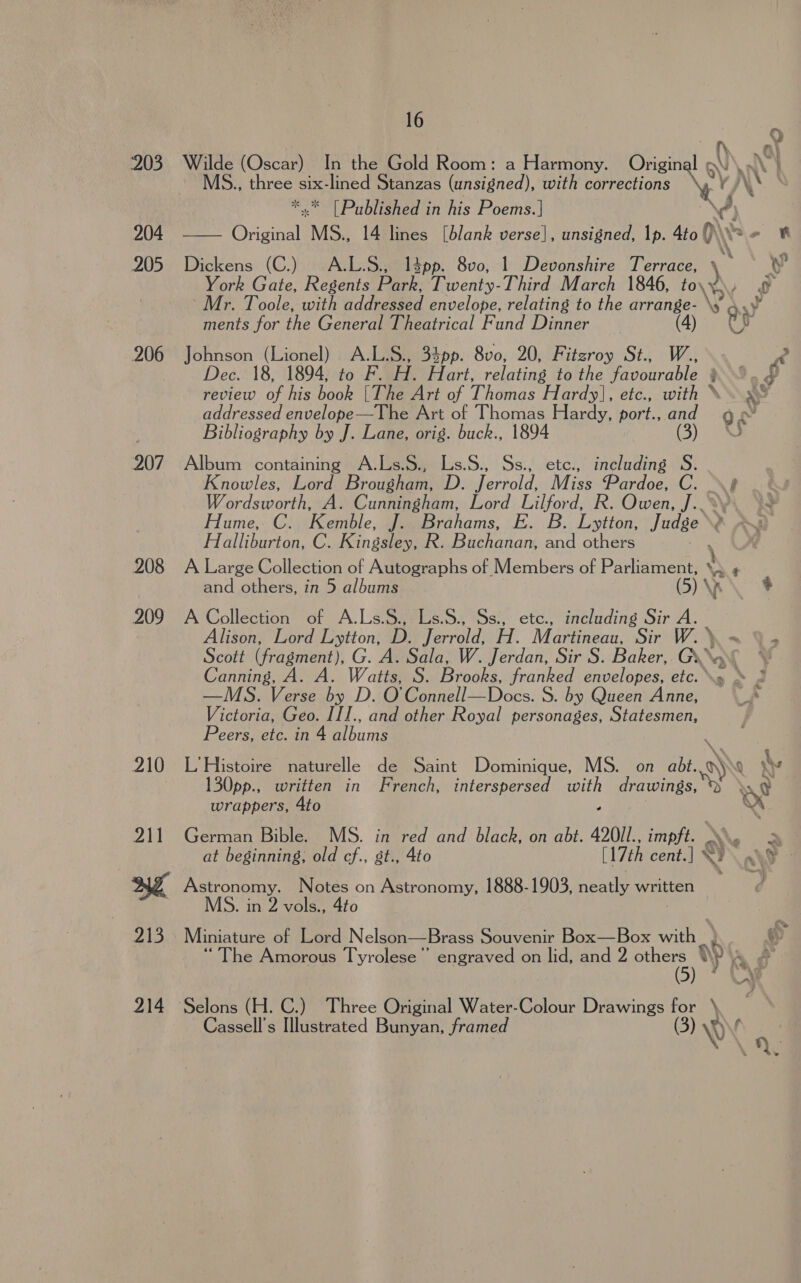 16
203 Wilde (Oscar) In the Gold Room: a Harmony. Original
MS., three six-lined Stanzas (unsigned), with corrections
*** [Published in his Poems.]
204 —— Original MS., 14 lines [blank verse], unsigned, 1p. 4to
205 Dickens (C.) A.L.S., 1½pp. 8vo, 1 Devonshire Terrace,
York Gate, Regents Park, Twenty-Third March 1846, to
Mr. Toole, with addressed envelope, relating to the arrange-
ments for the General Theatrical Fund Dinner (4)
206 Johnson (Lionel) A.L.S., 3½pp. 8vo, 20, Fitzroy St., W.,
Dec. 18, 1894, to F. H. Hart, relating to the favourable
review of his book [The Art of Thomas Hardy], etc., with
addressed envelope—The Art of Thomas Hardy, port., and
Bibliography by J. Lane, orig. buck., 1894 (3)
207 Album containing A.Ls.S., Ls.S., Ss., etc., including S.
Knowles, Lord Brougham, D. Jerrold, Miss Pardoe, C.
Wordsworth, A. Cunningham, Lord Lilford, R. Owen, J.
Hume, C. Kemble, J. Brahams, E. B. Lytton, Judge
Halliburton, C. Kingsley, R. Buchanan, and others
208 A Large Collection of Autographs of Members of Parliament,
and others, in 5 albums (5)
209 A Collection of A.Ls.S., Ls.S., Ss., etc., including Sir A.
Alison, Lord Lytton, D. Jerrold, H. Martineau, Sir W.
Scott (fragment), G. A. Sala, W. Jerdan, Sir S. Baker, G.
Canning, A. A. Watts, S. Brooks, franked envelopes, etc.
—MS. Verse by D. O'Connell—Docs. S. by Queen Anne,
Victoria, Geo. III., and other Royal personages, Statesmen,
Peers, etc. in 4 albums
210 L'Histoire naturelle de Saint Dominique, MS. on abt.
130pp., written in French, interspersed with drawings,
wrappers, 4to
211 German Bible. MS. in red and black, on abt. 420ll., impft.
at beginning, old cf., gt., 4to [17th cent.]
Astronomy. Notes on Astronomy, 1888-1903, neatly written
MS. in 2 vols., 4to
213 Miniature of Lord Nelson—Brass Souvenir Box—Box with
"The Amorous Tyrolese" engraved on lid, and 2 others
(5)
214 Selons (H. C.) Three Original Water-Colour Drawings for
Cassell's Illustrated Bunyan, framed (3)